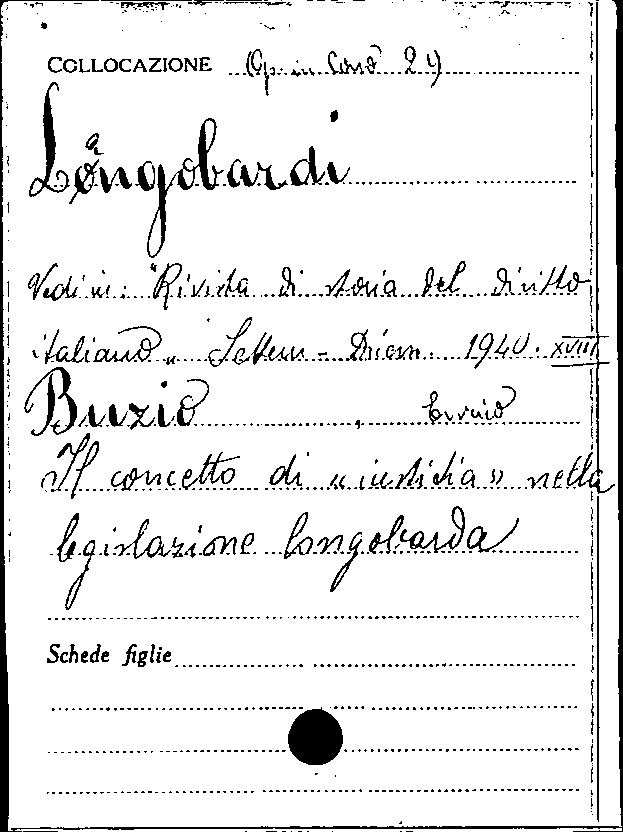 COLLOCAZIONE Op. in Cons 24
Longobardi
Vedi in: "Rivista di storia del diritto
italiano" Settem - Dicem. 1940. XVIII
Buzio,
Il concetto di "iustitia" nella
legislazione longobarda
Schede figlie